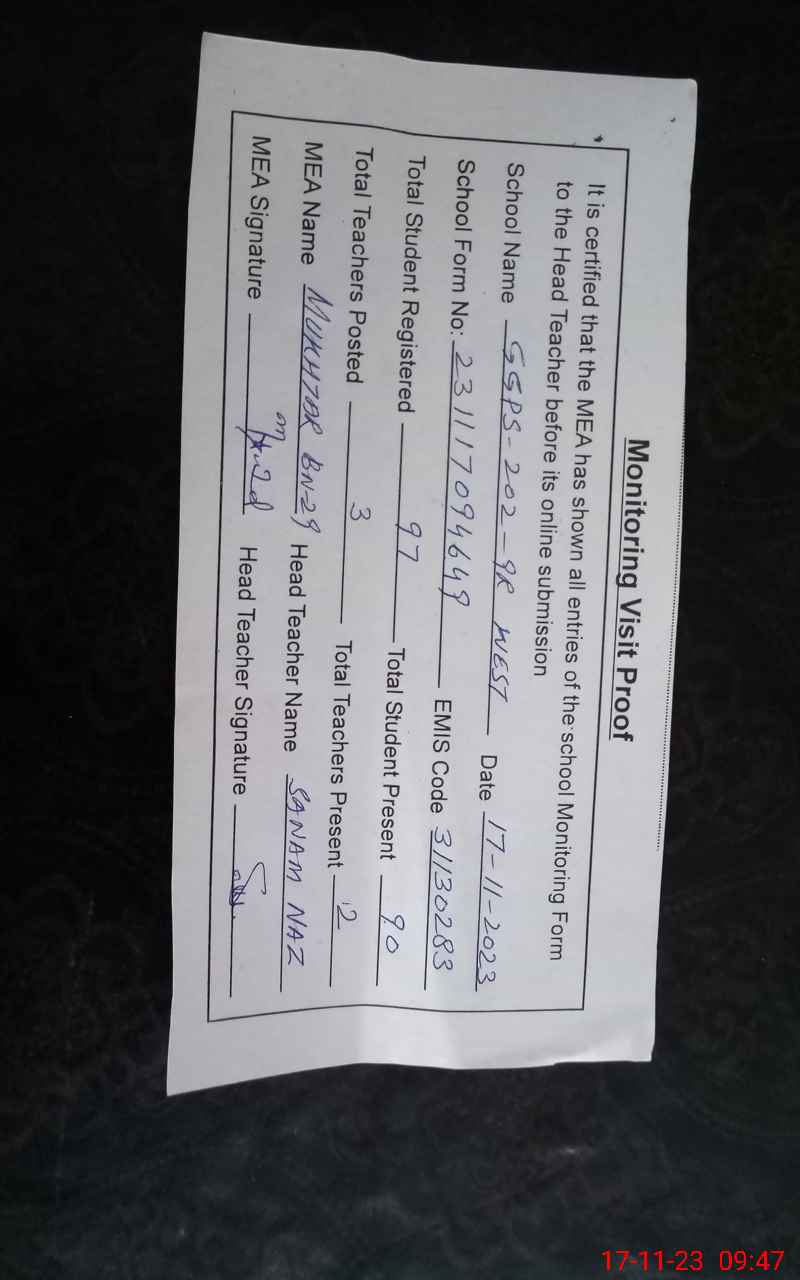 Monitoring Visit Proof
It is certified that the MEA has shown all entries of the school Monitoring Form
to the Head Teacher before its online submission
School Name GGPS-202-9R WEST Date 17-11-2023
School Form No: 231117094649 EMIS Code 31130283
Total Student Registered 97 Total Student Present 90
Total Teachers Posted 3 Total Teachers Present 2
MEA Name MUKHTAR BN-29 Head Teacher Name SANAM NAZ
MEA Signature Head Teacher Signature
17-11-23 09:47